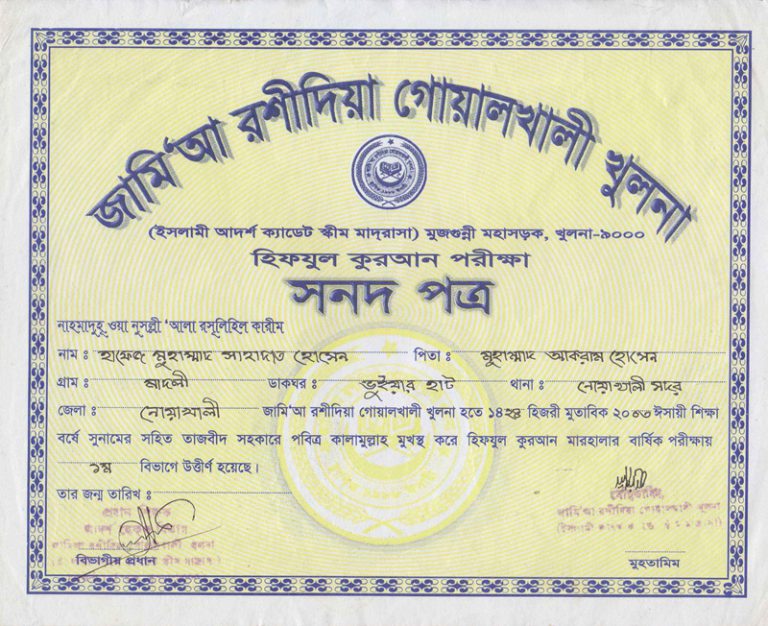 জামি'আ রশীদিয়া গোয়ালখালী খুলনা
(ইসলামী আদর্শ ক্যাডেট স্কীম মাদ্‌রাসা) মুজগুন্নী মহাসড়ক, খুলনা-৯০০০
হিফযুল কুরআন পরীক্ষা
সনদ পত্র
নাহমাদুহূ ওয়া নুসল্লী 'আলা রসূলিহিল কারীম
নাম : হাফেজ মুহাম্মাদ সাহাদাত হোসেন পিতা : মুহাম্মাদ আকরাম হোসেন
গ্রাম : মাদলী ডাকঘর : ভুইয়ার হাট থানা : নোয়াখালী সদর
জেলা : নোয়াখালী জামি'আ রশীদিয়া গোয়ালখালী খুলনা হতে ১৪২৪ হিজরী মুতাবিক ২০০৩ ঈসায়ী শিক্ষা
বর্ষে সুনামের সহিত তাজবীদ সহকারে পবিত্র কালামুল্লাহ মুখস্থ করে হিফযুল কুরআন মারহালার বার্ষিক পরীক্ষায়
১ম বিভাগে উত্তীর্ণ হয়েছে।
তার জন্ম তারিখ :
প্রধান
মুহতামিম,
জামি'আ রশীদিয়া গোয়ালখালী খুলনা
বিভাগীয় প্রধান
মুহতামিম